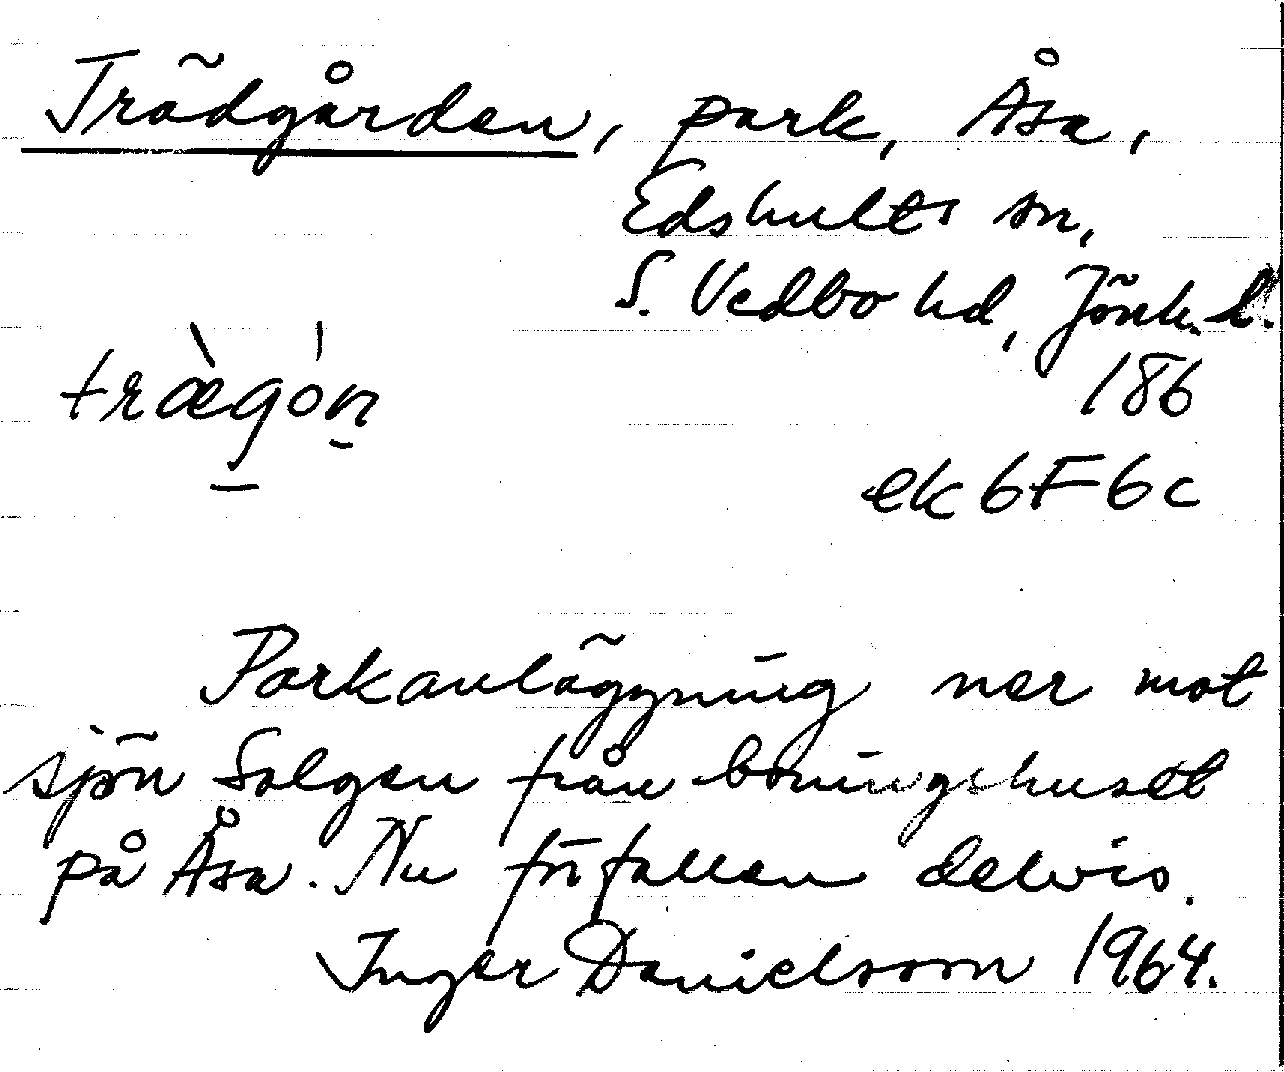 Trädgården, park, Åsa,
Edshults sn,
S. Vedbo hd, Jönk. l.
træ̀gón̠
186
ek 6F6c
Parkanläggning ner mot
sjön Solgen från boningshuset
på Åsa. Nu förfallen delvis.
Inger Danielsson 1964.